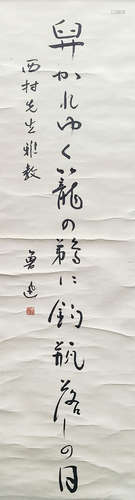 舁かれゆく籠の鵜に釣瓶落しの日
西村先生雅教
魯迅